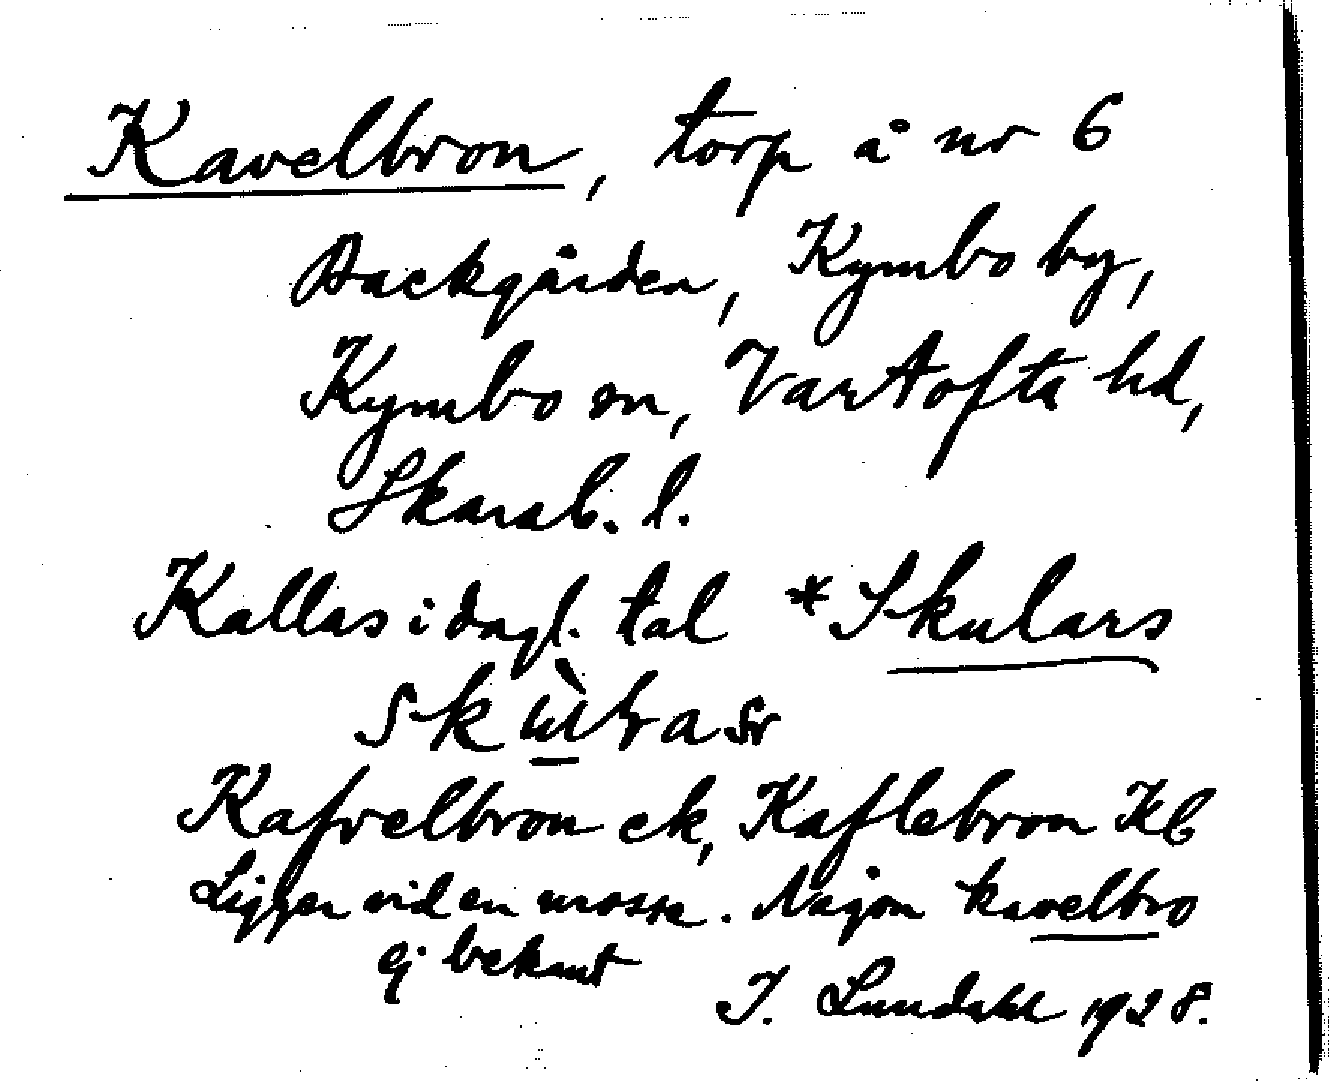 Kavelbron, torp å nr 6
Backgården, Kymbo by,
Kymbo sn, Vartofta hd,
Skarab. l.
Kallas i dagl. tal *Skulars
Kafvelbron ek, Kaflebron Kb
Ligger vid en mosse. Någon kavelbro
ej bekant
I. Lundahl 1928.